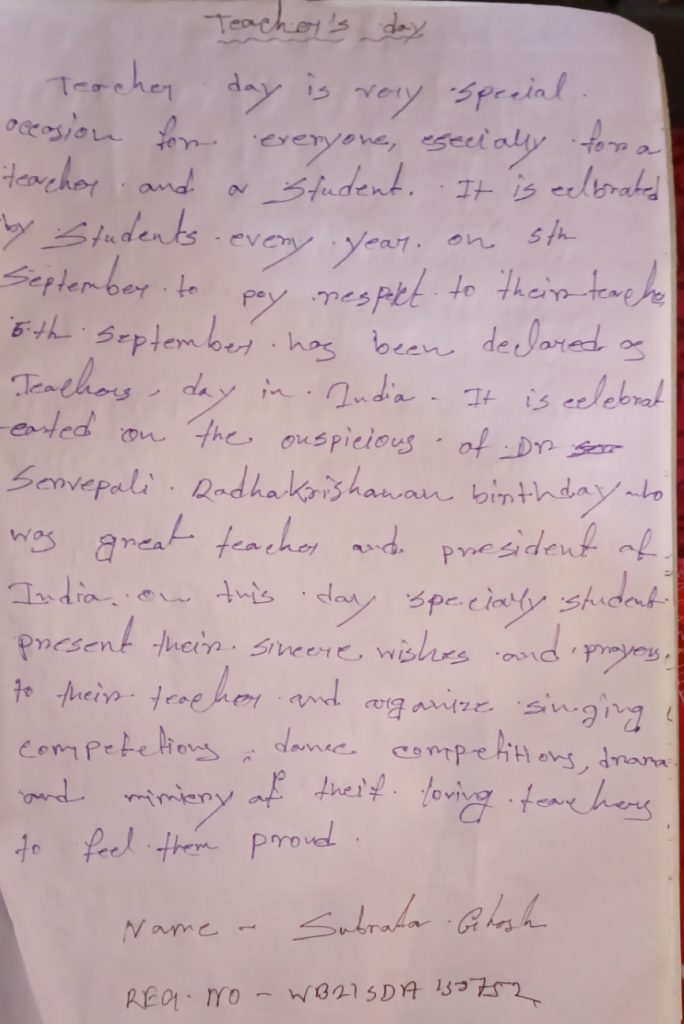 Teacher's day
Teacher day is very special.
occasion for everyone, esecially for a
teacher and a student. It is eelbrated
by Students every year. on 5th
September to pay respekt to their teache
5th september has been declared as
Teachers, day in India. It is celebrat
eated on the ouspicious of Dr
Servepali Radhakrishanan birthday who
was great teacher and president of
India. on this day specialy student
present their sincere wishes and prayers
to their teacher and organize singing
competetions, dance competitions, drama
and mimicry of their loving teachers
to feel them proud.
Name - Subrata Ghosh
REG. NO - WB21SDA